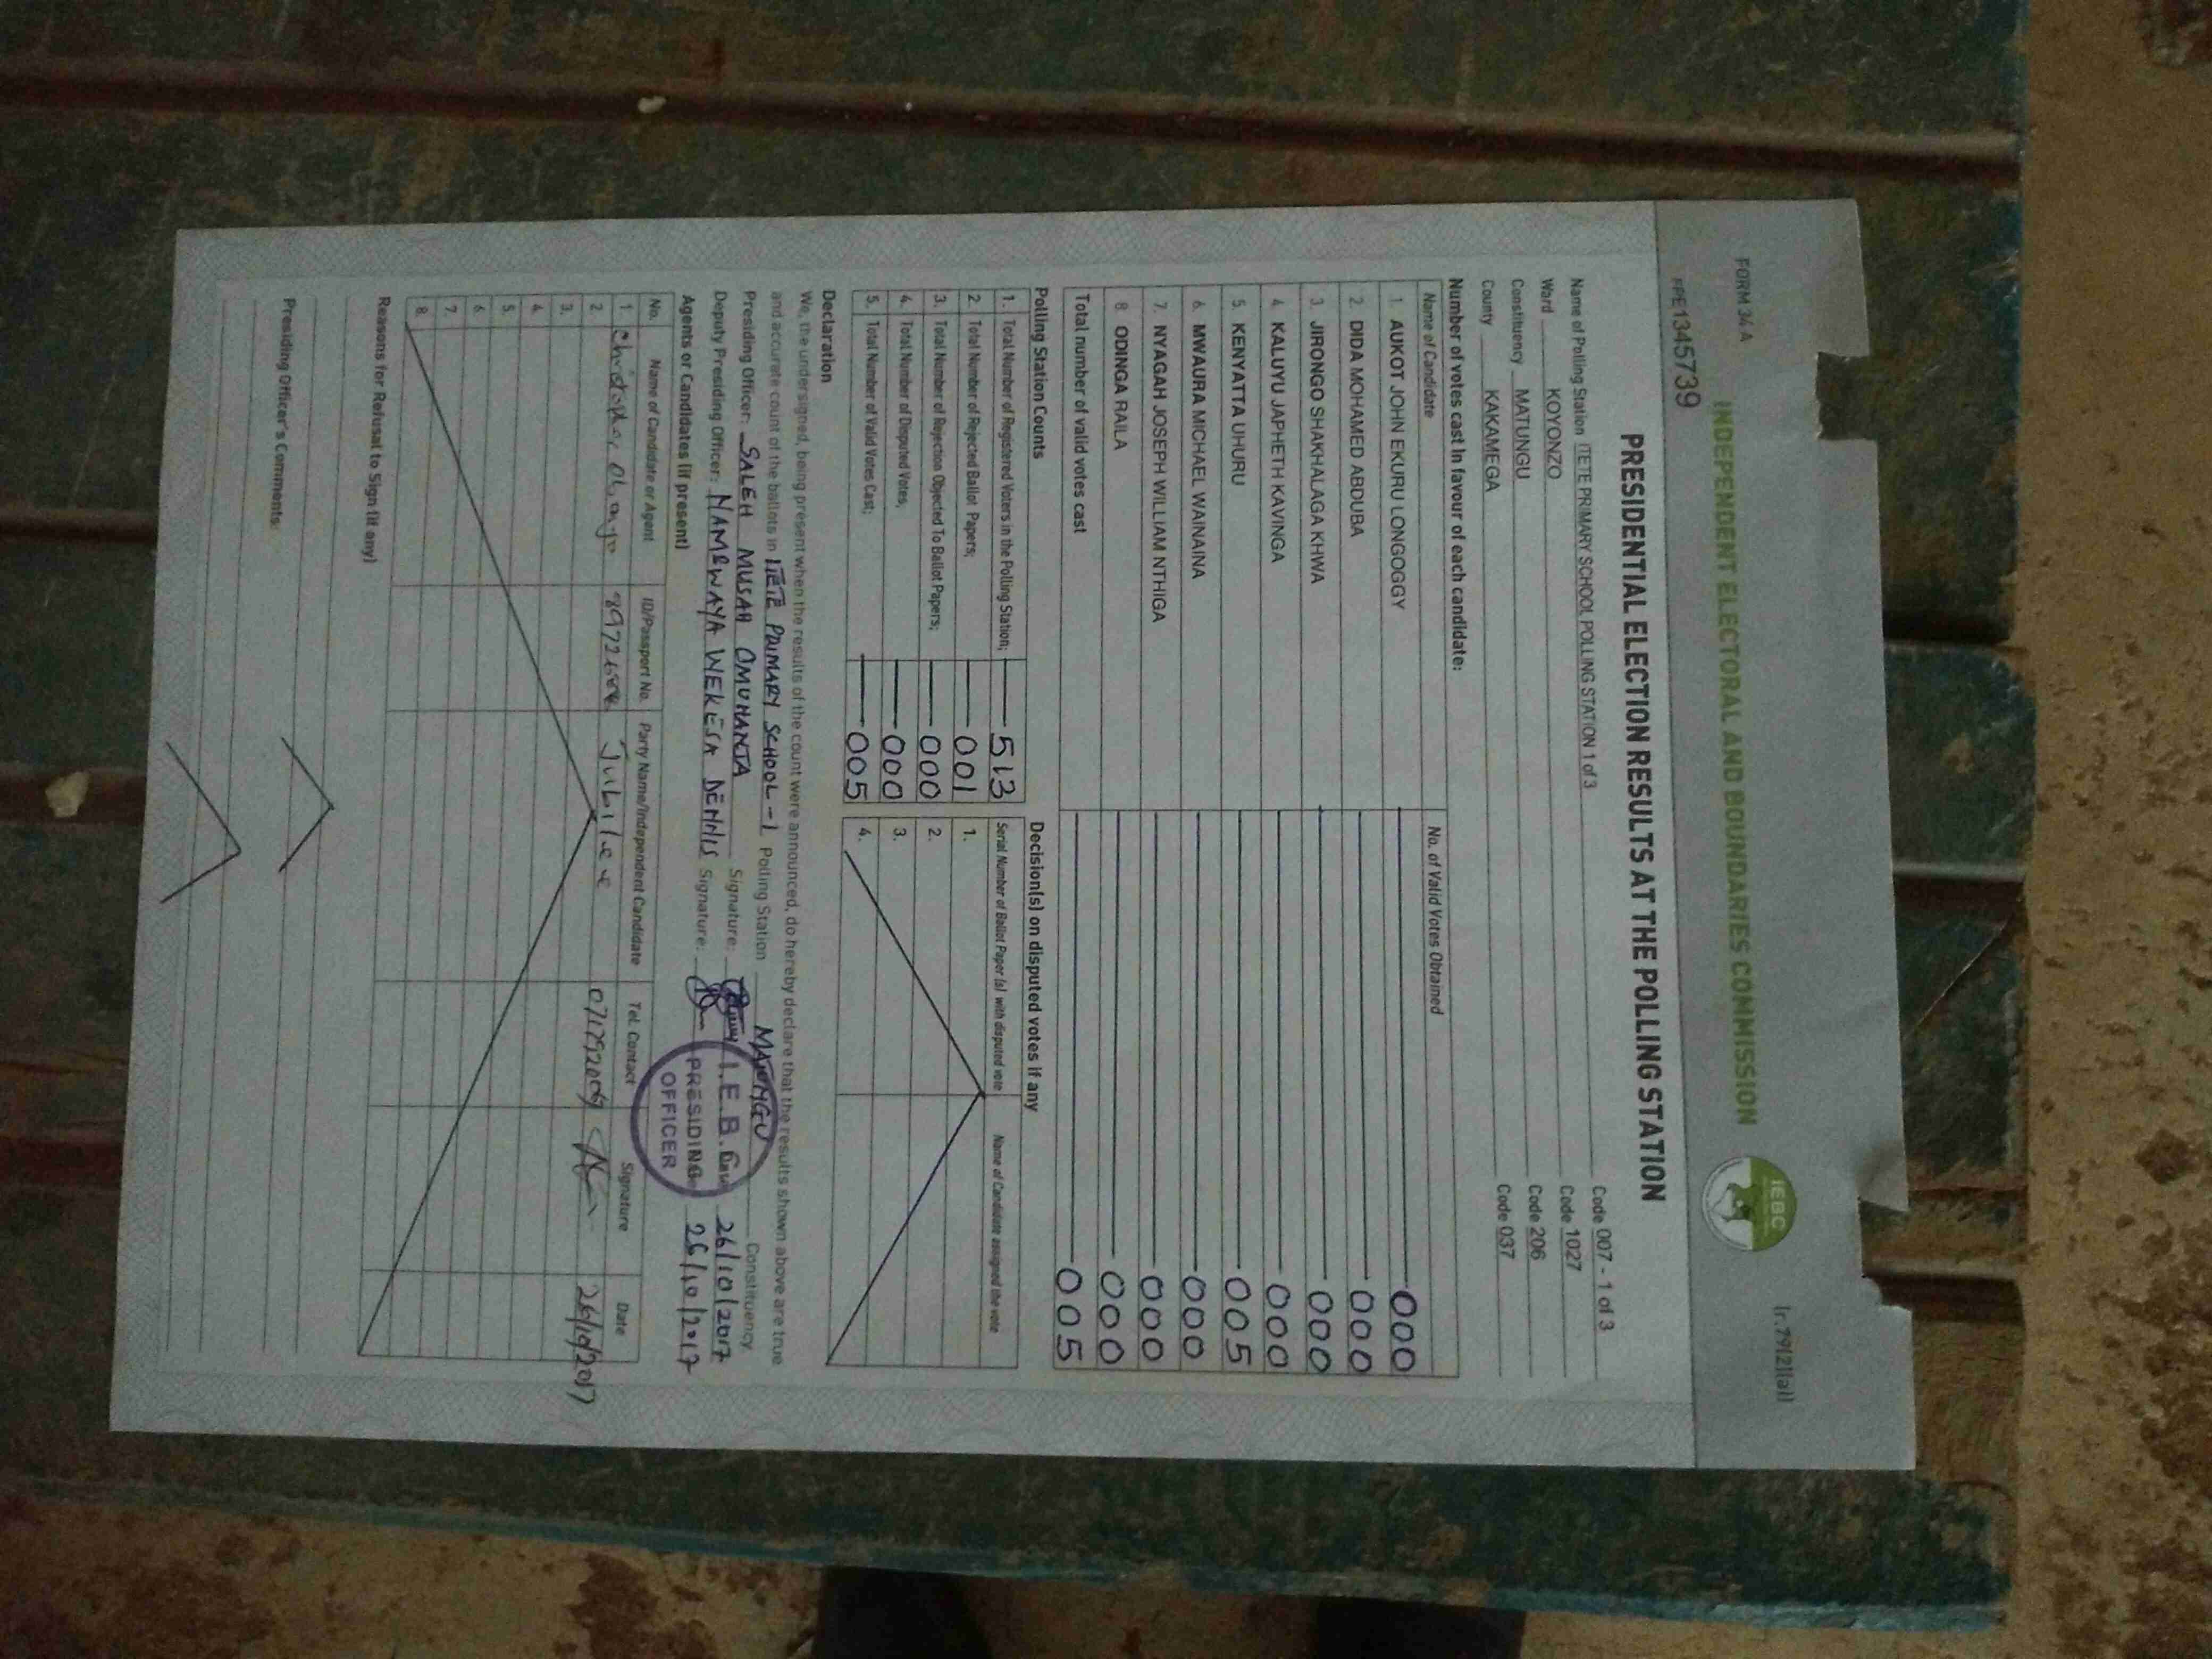 FORM 34 A
(r.79(2)(a))
INDEPENDENT ELECTORAL AND BOUNDARIES COMMISSION
IEBC
FPE1345739
PRESIDENTIAL ELECTION RESULTS AT THE POLLING STATION
Name of Polling Station ITETE PRIMARY SCHOOL POLLING STATION 1 of 3 Code 007 - 1 of 3
Ward KOYONZO Code 1027
Constituency MATUNGU Code 206
County KAKAMEGA Code 037
Number of votes cast in favour of each candidate:
Name of Candidate No. of Valid Votes Obtained
1 AUKOT JOHN EKURU LONGOGGY 000
2. DIDA MOHAMED ABDUBA 000
3 JIRONGO SHAKHALAGA KHWA 000
4 KALUYU JAPHETH KAVINGA 000
5. KENYATTA UHURU 005
6. MWAURA MICHAEL WAINAINA 000
7. NYAGAH JOSEPH WILLIAM NTHIGA 000
8 ODINGA RAILA 000
Total number of valid votes cast 005
Polling Station Counts
1. Total Number of Registered Voters in the Polling Station; 513
2. Total Number of Rejected Ballot Papers; 001
3. Total Number of Rejection Objected To Ballot Papers; 000
4. Total Number of Disputed Votes; 000
5. Total Number of Valid Votes Cast; 005
Decision(s) on disputed votes if any
Serial Number of Ballot Paper (s) with disputed vote Name of Candidate assigned the vote
1.
2.
3.
4.
Declaration
We, the undersigned, being present when the results of the count were announced, do hereby declare that the results shown above are true
and accurate count of the ballots in ITETE PRIMARY SCHOOL - 1 Polling Station MATUNGU Constituency
Presiding Officer: SALEH MUSAH OMUHANTA Signature: 26/10/2017
Deputy Presiding Officer: NAMBWAYA WEKESA DENNIS Signature: 26/10/2017
I.E.B.C
PRESIDING
OFFICER
Agents or Candidates (if present)
No. Name of Candidate or Agent ID/Passport No. Party Name/Independent Candidate Tel. Contact Signature Date
1 Christopher Jubilee 26/10/2017
2.
3.
4.
5
6
7.
8.
Reasons for Refusal to Sign (if any)
Presiding Officer's Comments: